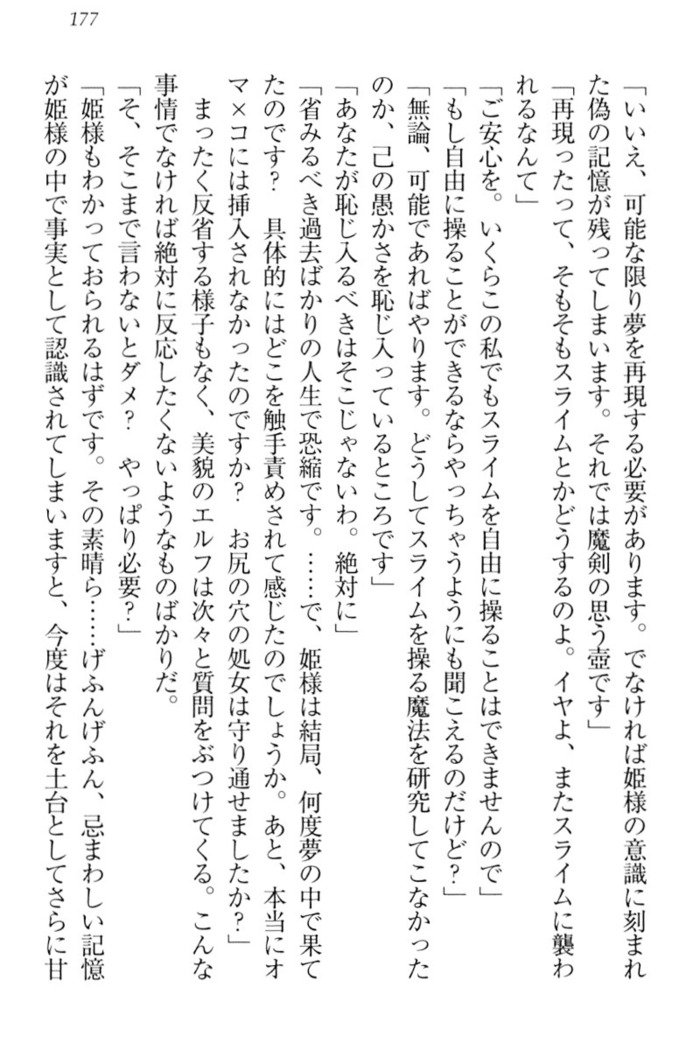 177
「いいえ、可能な限り夢を再現する必要があります。でなければ姫様の意識に刻まれ
た偽の記憶が残ってしまいます。それでは魔剣の思う壺です」
「再現ったって、そもそもスライムとかどうするのよ。イヤよ、またスライムに襲わ
れるなんて」
「ご安心を。いくらこの私でもスライムを自由に操ることはできませんので」
「もし自由に操ることができるならやっちゃうようにも聞こえるのだけど？」
「無論、可能であればやります。どうしてスライムを操る魔法を研究してこなかった
のか、己の愚かさを恥じ入っているところです」
「あなたが恥じ入るべきはそこじゃないわ。絶対に」
「省みるべき過去ばかりの人生で恐縮です。……で、姫様は結局、何度夢の中で果て
たのです？　具体的にはどこを触手責めされて感じたのでしょうか。あと、本当にオ
マ×コには挿入されなかったのですか？　お尻の穴の処女は守り通せましたか？」
まったく反省する様子もなく、美貌のエルフは次々と質問をぶつけてくる。こんな
事情でなければ絶対に反応したくないようなものばかりだ。
「そ、そこまで言わないとダメ？　やっぱり必要？」
「姫様もわかっておられるはずです。その素晴ら……げふんげふん、忌まわしい記憶
が姫様の中で事実として認識されてしまいますと、今度はそれを土台としてさらに甘